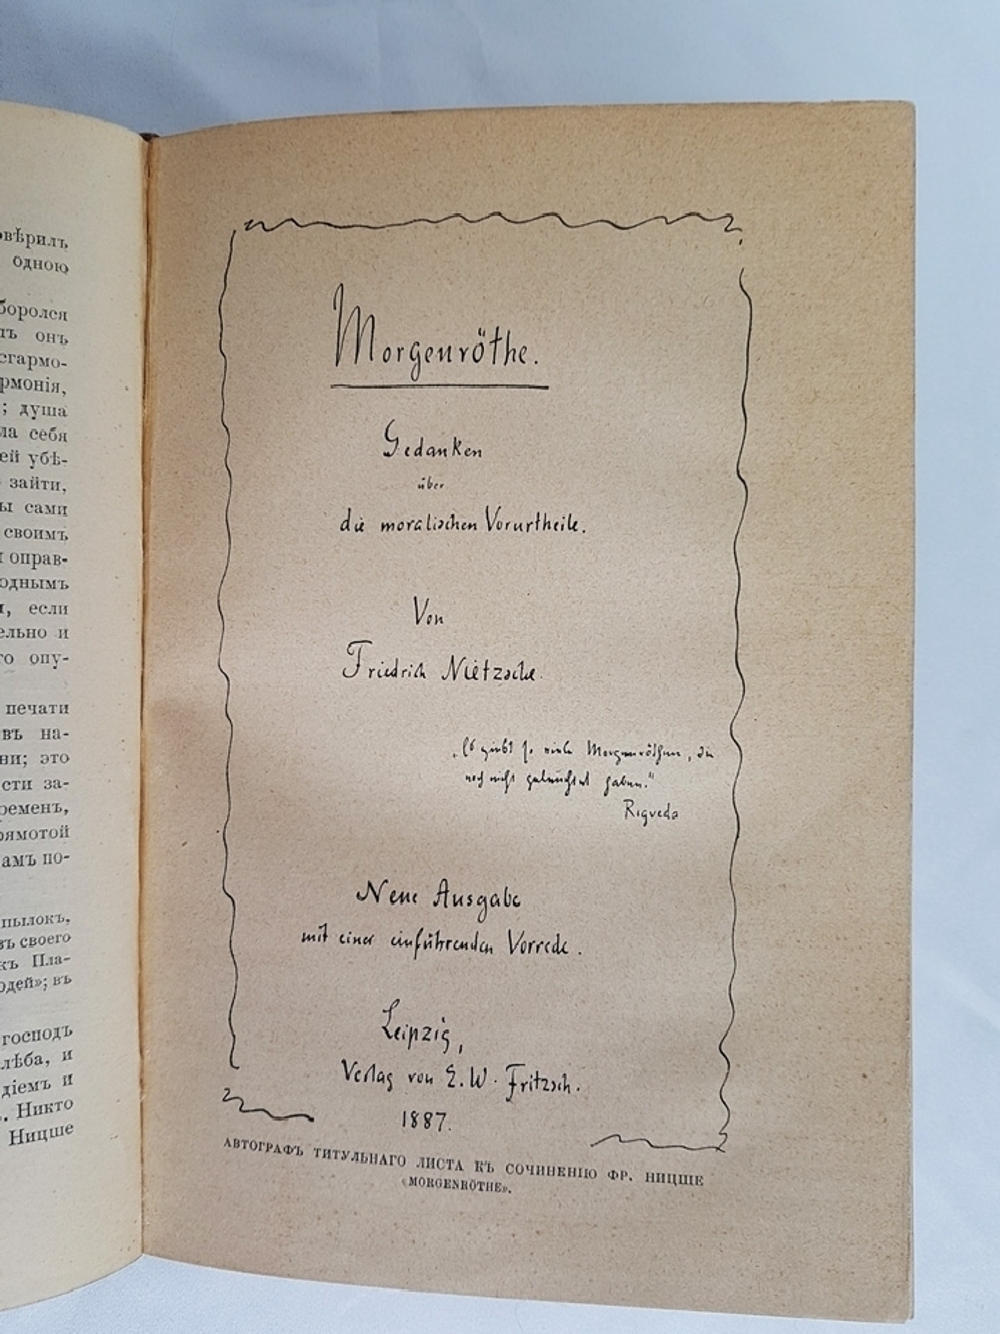 овѣрилъ
одною
боролся
лъ онъ
сгармо-
рмонія,
; душа
ла себя
ей убѣ-
зайти,
ы сами
своимъ
оправ-
однымъ
и, если
ельно и
го опу-
печати
въ на-
ни; это
сти за-
ременъ,
рямотой
амъ по-
пылокъ,
въ своего
къ Пла-
одей»; въ
господъ
лѣба, и
діемъ и
. Никто
Ницше
Morgenröthe.
Gedanken
über
die moralischen Vorurtheile.
Von
Friedrich Nietzsche.
„Es giebt so viele Morgenröthen, die
noch nicht geleuchtet haben."
Rigveda
Neue Ausgabe
mit einer einführenden Vorrede.
Leipzig,
Verlag von E. W. Fritzsch.
1887.
АВТОГРАФЪ ТИТУЛЬНАГО ЛИСТА КЪ СОЧИНЕНІЮ ФР. НИЦШЕ
«MORGENRÖTHE».